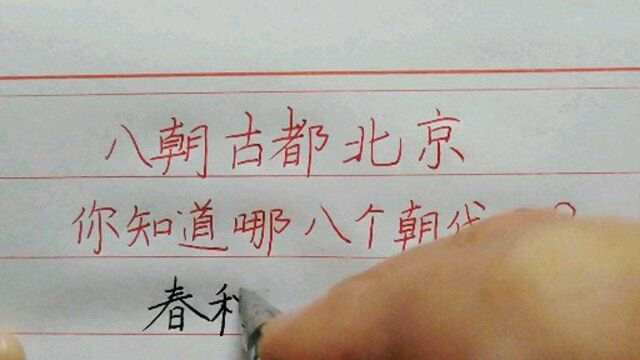 八朝古都北京
你知道哪八个朝代
春